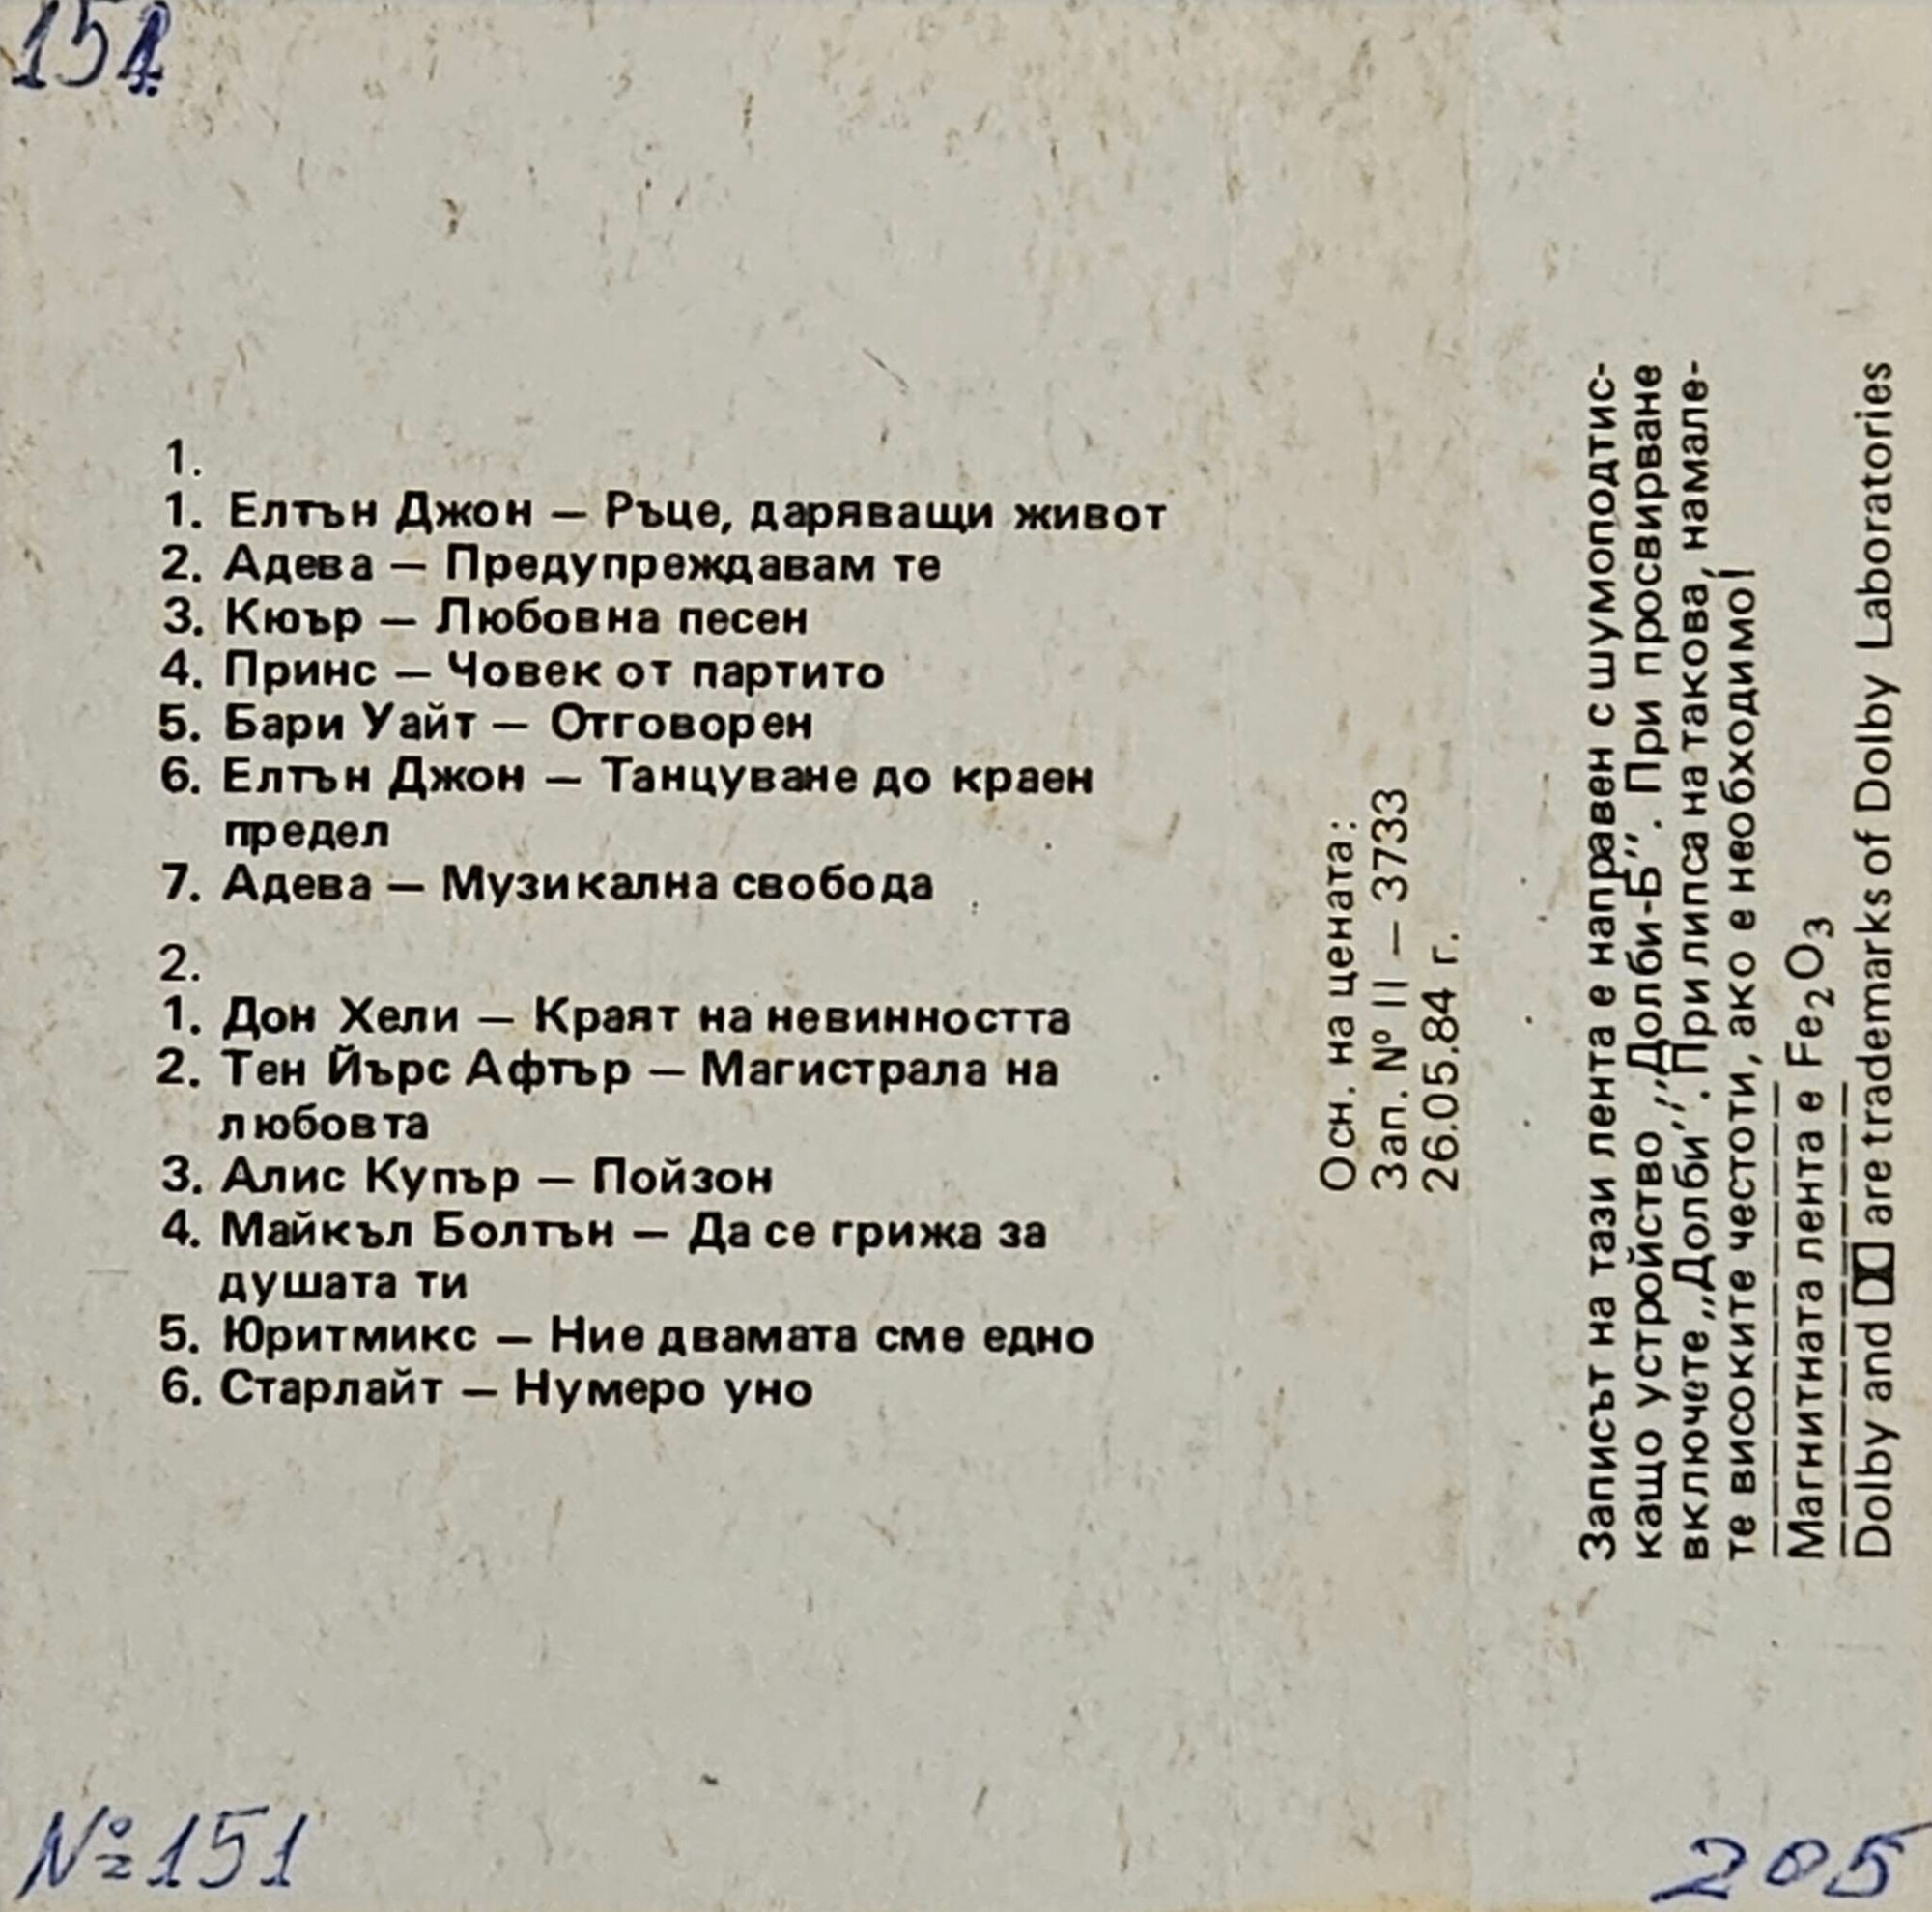 151
1.
1. Елтън Джон — Ръце, даряващи живот
2. Адева — Предупреждавам те
3. Кюър — Любовна песен
4. Принс — Човек от партито
5. Бари Уайт — Отговорен
6. Елтън Джон — Танцуване до краен
предел
7. Адева — Музикална свобода
2.
1. Дон Хели — Краят на невинността
2. Тен Йърс Афтър — Магистрала на
любовта
3. Алис Купър — Пойзон
4. Майкъл Болтън — Да се грижа за
душата ти
5. Юритмикс — Ние двамата сме едно
6. Старлайт — Нумеро уно
Осн. на цената:
Зап. № II — 3733
26.05.84 г.
Записът на тази лента е направен с шумоподтис-
кащо устройство ,,Долби-Б’’. При просвирване
включете ,,Долби’’. При липса на такова, намале-
те високите честоти, ако е необходимо!
Магнитната лента е Fe₂O₃
Dolby and are trademarks of Dolby Laboratories
№151
205